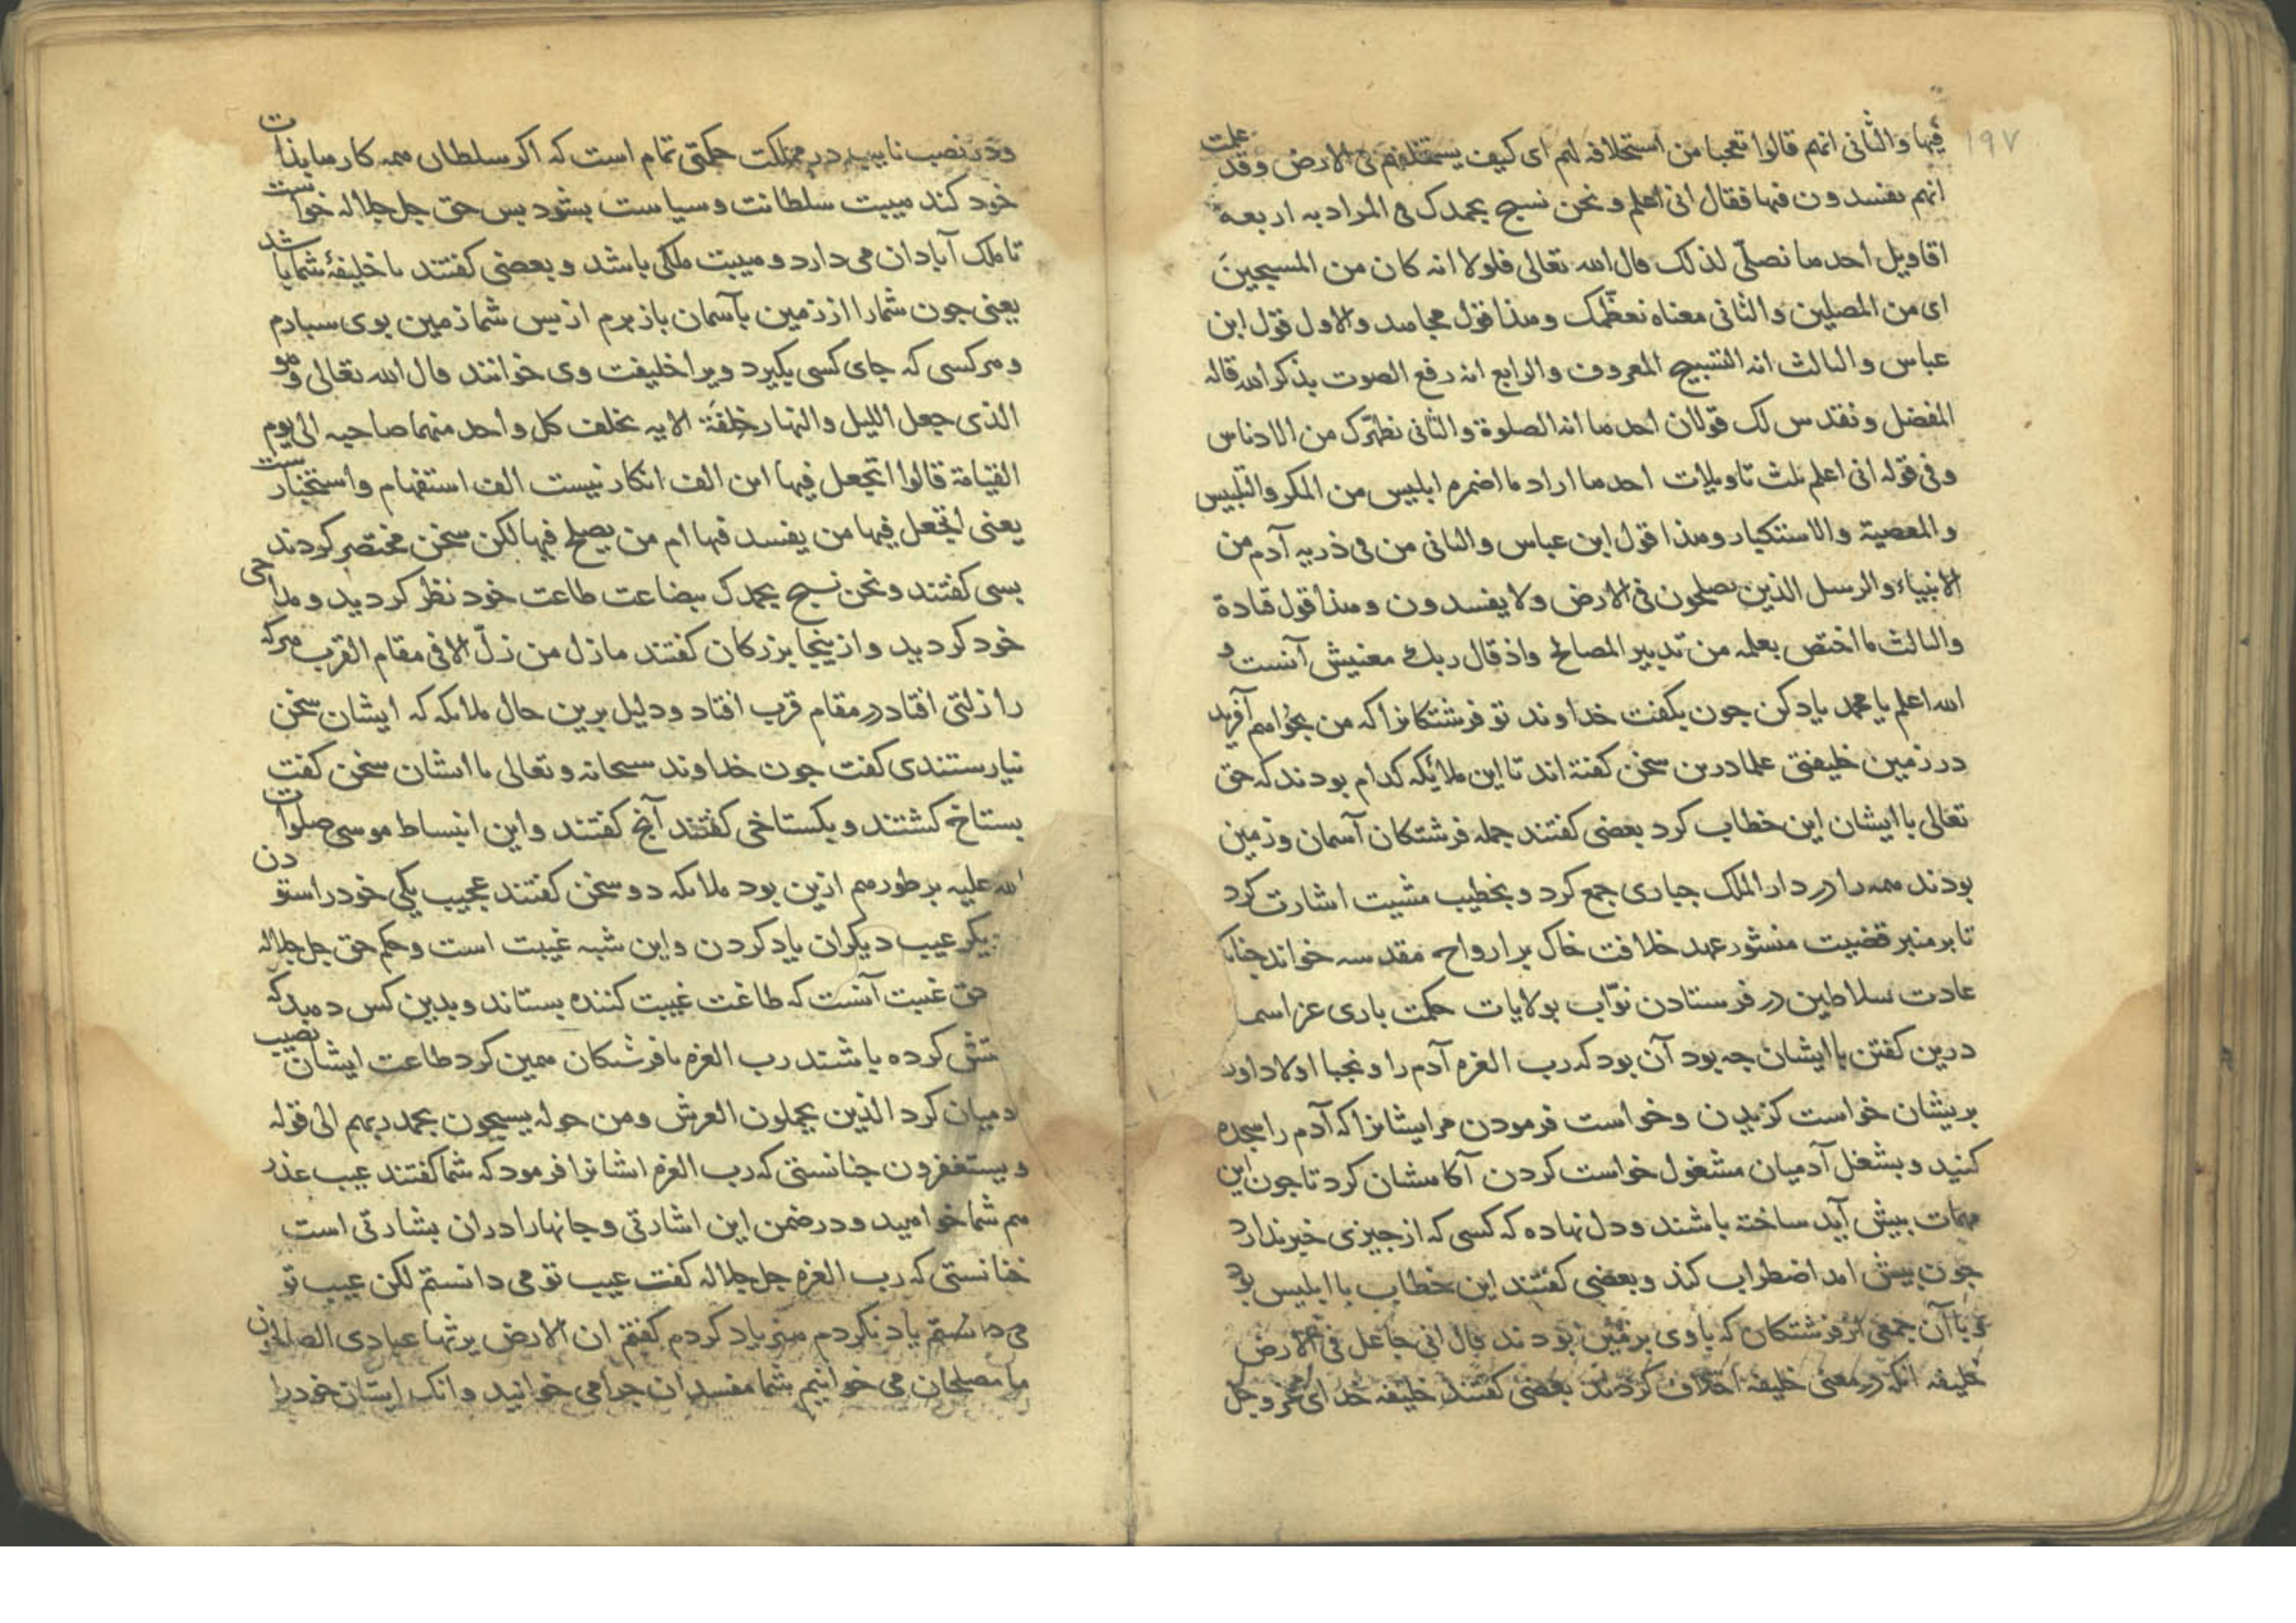 ۱۹۷
فیها والثانی انهم قالوا تعجبا من استخلافه لهم ای کیف یستخلفهم فی الارض وقد علمت
انهم یفسدون فیها فقال انی اعلم ونحن نسبح بحمدک فی المراد به اربعة
اقاویل احدها نصلّی لذلک قال الله تعالی فلولا انه کان من المسبحین
ای من المصلین والثانی معناه نعظّمک وهذا قول مجاهد والاول قول ابن
عباس والثالث انه التسبیح المعروف والرابع انه رفع الصوت بذکر الله قاله
المفضل ونقدس لک قولان احدهما انه الصلوة والثانی نطهّرک من الادناس
وفی قوله انی اعلم ثلث تاویلات احدها اراد ما اضمره ابلیس من المکر والتلبیس
والمعصیة والاستکبار وهذا قول ابن عباس والثانی من فی ذریه آدم من
الانبیاء والرسل الذین یصلحون فی الارض ولا یفسدون وهذا قول قادة
والثالث ما اختص بعلمه من تدبیر المصالح واذ قال ربک معنیش آنست و
الله اعلم یا محمد یاد کن جون بکفت خداوند تو فرشتکانرا که من بخواهم آفرید
در زمین خلیفتی علما درین سخن کفته اند تا این ملایکه کدام بودند که حق
تعالی با ایشان این خطاب کرد بعضی کفتند جمله فرشتکان آسمان و زمین
بودند همه را در دار الملک جباری جمع کرد و بخطیب مشیت اشارت کرد
تا بر منبر قضیت منشور عهد خلافت خاک بر ارواح مقدسه خواند جنانک
عادت سلاطین در فرستادن نوّاب بولایات حکمت باری عز اسمه
درین کفتن با ایشان جه بود آن بود که رب العزه آدم را و نجبا اولاد اورا
بریشان خواست کزیدن و خواست فرمودن مر ایشانرا که آدم را سجده
کنید و بشغل آدمیان مشغول خواست کردن آکاهشان کرد تا جون این
مهمات بیش آید ساخته باشند و دل نهاده که کسی که از جیزی خبر ندارد
جون بیش امد اضطراب کند و بعضی کفتند این خطاب با ابلیس بود
و با آن جمعی از فرشتکان که با وی بر زمین بودند قال انی جاعل فی الارض
خلیفه انکه در معنی خلیفه اختلاف کردند بعضی کفتند خلیفه خدای عز و جل
و در نصب نایب در مملکت حکمتی تمام است که اکر سلطان همه کارها بذات
خود کند هیبت سلطانت و سیاست بشود بس حق جل جلاله خواست
تا ملک آبادان می دارد و هیبت ملکی باشد و بعضی کفتند ما خلیفۀ شما باشد
یعنی جون شما را از زمین بآسمان باز برم از بس شما زمین بوی سبارم
و هر کسی که جای کسی بکیرد ویرا خلیفت وی خوانند قال الله تعالی وهو
الذی جعل اللیل والنهار خلفة الایه یخلف کل واحد منهما صاحبه الی یوم
القیامة قالوا اتجعل فیها این الف انکار نیست الف استفهام و استخبارست
یعنی اتجعل فیها من یفسد فیها ام من یصلح فیها لکن سخن مختصر کردند
بسی کفتند ونحن نسبح بحمدک ببضاعت طاعت خود نظر کردید و مداحی
خود کردید و از ینجا بزرکان کفتند ما زل من زلّ الا فی مقام القرب هرکه
را زلتی افتاد در مقام قرب افتاد و دلیل برین حال ملایکه که ایشان سخن
نیارستندی کفت جون خداوند سبحانه و تعالی با ایشان سخن کفت
بستاخ کشتند و بکستاخی کفتند آنج کفتند و این انبساط موسی صلوات
الله علیه بر طور هم ازین بود ملایکه دو سخن کفتند عجیب یکی خود را ستودن
دیکر عیب دیکران یاد کردن و این شبه غیبت است و حکم حق جل جلاله
حق غیبت آنست که طاعت غیبت کننده بستاند و بدین کس دهد که
کرده باشند رب العزه با فرشتکان همین کرد طاعت ایشان نصیب
آدمیان کرد الذین یحملون العرش ومن حوله یسبحون بحمد ربهم الی قوله
ویستغفرون جنانستی که رب العزه ایشانرا فرمود که شما کفتند عیب عذر
هم شما خواهید و در ضمن این اشارتی و جانها را در ان بشارتی است
جنانستی که رب العزه جل جلاله کفت عیب تو می دانستم لکن عیب تو
می دانستم یاد نکردم هنر یاد کردم کفتم ان الارض یرثها عبادی الصالحون
ما مصلحان می خوانیم شما مفسدان جرا می خوانید و انک ایشان خود را